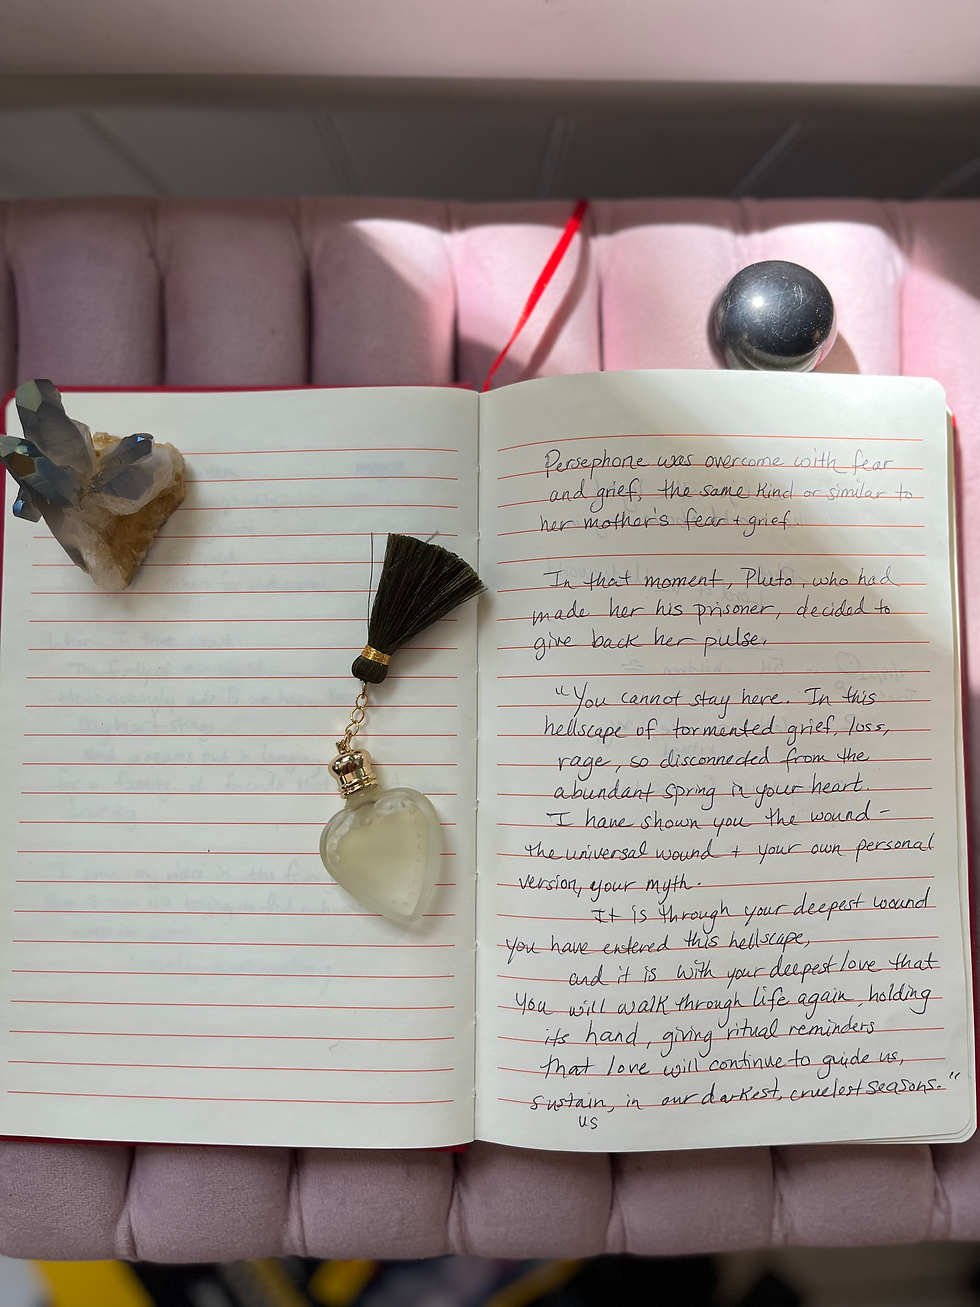 Persephone was overcome with fear
and grief, the same kind or similar to
her mother's fear + grief.
In that moment, Pluto, who had
made her his prisoner, decided to
give back her pulse.
"You cannot stay here. In this
hellscape of tormented grief, loss,
rage, so disconnected from the
abundant spring in your heart.
I have shown you the wound -
the universal wound + your own personal
version, your myth.
It is through your deepest wound
you have entered this hellscape,
and it is with your deepest love that
you will walk through life again, holding
its hand, giving ritual reminders
that love will continue to guide us,
sustain, in our darkest, cruelest seasons."
us